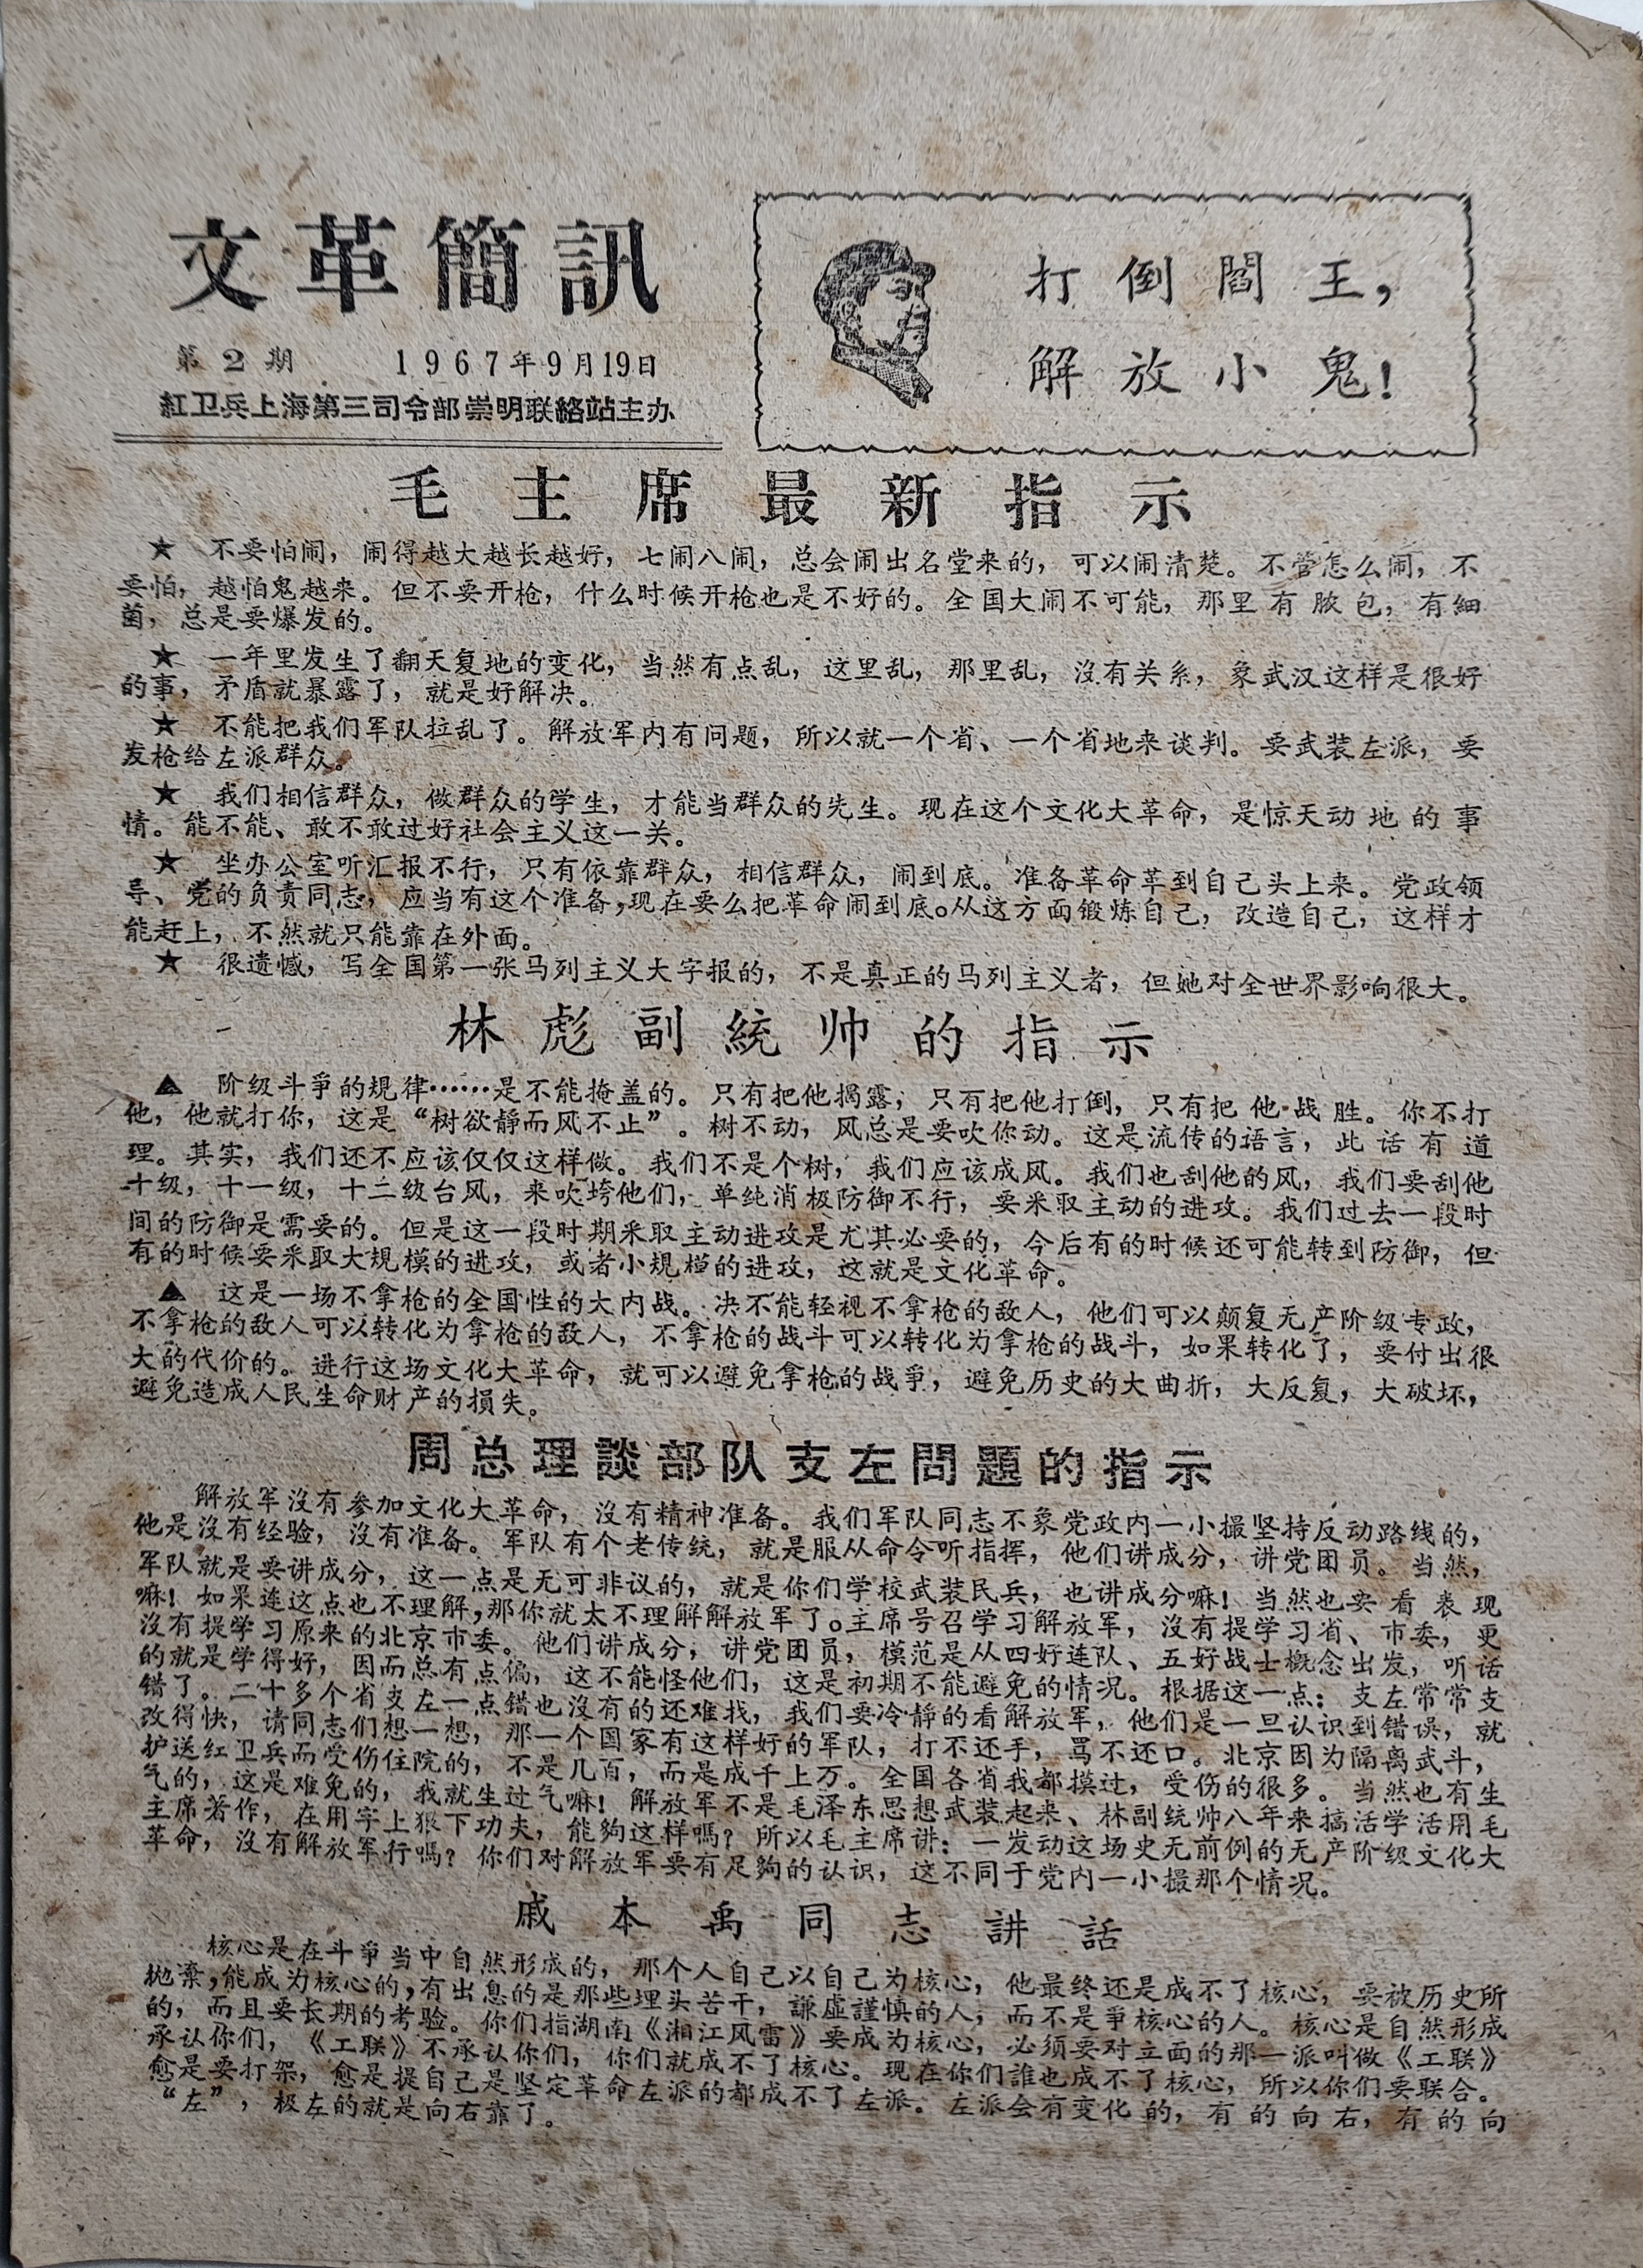 文革簡訊
第2期 1967年9月19日
紅卫兵上海第三司令部崇明联絡站主办
打倒閻王，
解放小鬼！
毛主席最新指示
★ 不要怕闹，闹得越大越长越好，七闹八闹，总会闹出名堂来的，可以闹清楚。不管怎么闹，不
要怕，越怕鬼越来。但不要开枪，什么时候开枪也是不好的。全国大闹不可能，那里有脓包，有細
菌，总是要爆发的。
★ 一年里发生了翻天复地的变化，当然有点乱，这里乱，那里乱，沒有关系，象武汉这样是很好
的事，矛盾就暴露了，就是好解决。
★ 不能把我们军队拉乱了。解放军内有问题，所以就一个省、一个省地来谈判。要武装左派，要
发枪给左派群众。
★ 我们相信群众，做群众的学生，才能当群众的先生。现在这个文化大革命，是惊天动地的事
情。能不能、敢不敢过好社会主义这一关。
★ 坐办公室听汇报不行，只有依靠群众，相信群众，闹到底。准备革命革到自己头上来。党政领
导、党的负责同志，应当有这个准备，现在要么把革命闹到底。从这方面锻炼自己，改造自己，这样才
能赶上，不然就只能靠在外面。
★ 很遗憾，写全国第一张马列主义大字报的，不是真正的马列主义者，但她对全世界影响很大。
林彪副統帅的指示
▲ 阶级斗爭的規律……是不能掩盖的。只有把他揭露，只有把他打倒，只有把他战胜。你不打
他，他就打你，这是“树欲静而风不止”。树不动，风总是要吹你动。这是流传的语言，此话有道
理。其实，我们还不应该仅仅这样做。我们不是个树，我们应该成风。我们也刮他的风，我们要刮他
十级，十一级，十二级台风，来吹垮他们，单纯消极防御不行，要采取主动的进攻。我们过去一段时
间的防御是需要的。但是这一段时期采取主动进攻是尤其必要的，今后有的时候还可能转到防御，但
有的时候要采取大規模的进攻，或者小規模的进攻，这就是文化革命。
▲ 这是一场不拿枪的全国性的大内战。决不能轻视不拿枪的敌人，他们可以颠复无产阶级专政，
不拿枪的敌人可以转化为拿枪的敌人，不拿枪的战斗可以转化为拿枪的战斗，如果转化了，要付出很
大的代价的。进行这场文化大革命，就可以避免拿枪的战爭，避免历史的大曲折，大反复，大破坏，
避免造成人民生命财产的損失。
周总理談部队支左問題的指示
解放军沒有参加文化大革命，沒有精神准备。我们军队同志不象党政内一小撮坚持反动路线的，
他是沒有经验，沒有准备。军队有个老传统，就是服从命令听指挥，他们讲成分，讲党团员。当然，
军队就是要讲成分，这一点是无可非议的，就是你们学校武装民兵，也讲成分嘛！当然也要看表现
嘛！如果连这点也不理解，那你就太不理解解放军了。主席号召学习解放军，沒有提学习省、市委，更
沒有提学习原来的北京市委。他们讲成分，讲党团员，模范是从四好连队、五好战士概念出发，听话
的就是学得好，因而总有点偏，这不能怪他们，这是初期不能避免的情况。根据这一点：支左常常支
错了。二十多个省支左一点错也沒有的还难找，我们要冷静的看解放军，他们是一旦认识到错误，就
改得快，请同志们想一想，那一个国家有这样好的军队，打不还手，骂不还口。北京因为隔离武斗，
护送红卫兵而受伤住院的，不是几百，而是成千上万。全国各省我都摸过，受伤的很多。当然也有生
气的，这是难免的，我就生过气嘛！解放军不是毛泽东思想武装起来、林副统帅八年来搞活学活用毛
主席著作，在用字上狠下功夫，能夠这样嗎？所以毛主席讲：一发动这场史无前例的无产阶级文化大
革命，沒有解放军行嗎？你们对解放军要有足夠的认识，这不同于党内一小撮那个情况。
戚本禹同志讲話
核心是在斗爭当中自然形成的，那个人自己以自己为核心，他最终还是成不了核心，要被历史所
抛棄，能成为核心的，有出息的是那些埋头苦干，谦虚謹慎的人，而不是爭核心的人。核心是自然形成
的，而且要长期的考验。你们指湖南《湘江风雷》要成为核心，必须要对立面的那一派叫做《工联》
承认你们，《工联》不承认你们，你们就成不了核心。现在你们誰也成不了核心，所以你们要联合。
愈是要打架，愈是提自己是坚定革命左派的都成不了左派。左派会有变化的，有的向右，有的向
“左”，极左的就是向右靠了。